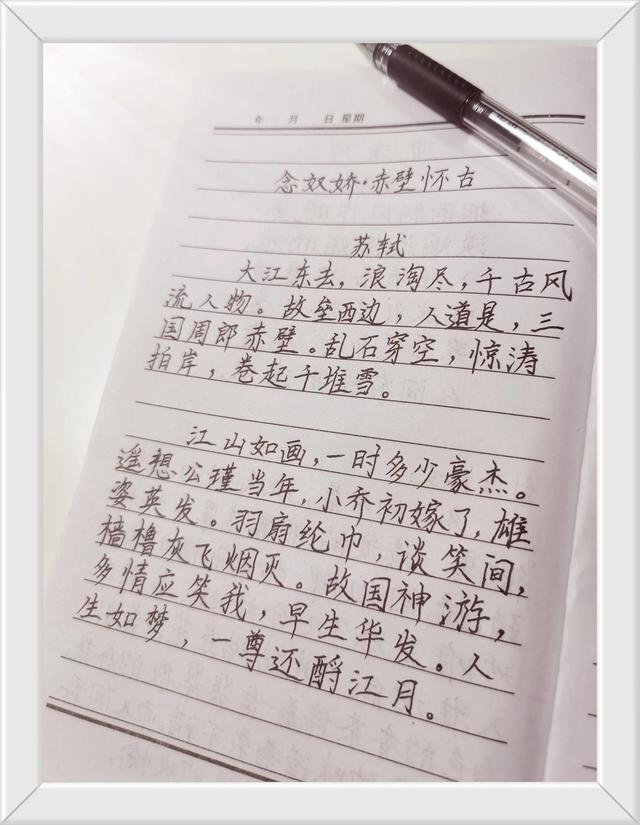 年 月 日 星期
念奴娇·赤壁怀古
苏轼
大江东去，浪淘尽，千古风
流人物。故垒西边，人道是，三
国周郎赤壁。乱石穿空，惊涛
拍岸，卷起千堆雪。
江山如画，一时多少豪杰。
遥想公瑾当年，小乔初嫁了，雄
姿英发。羽扇纶巾，谈笑间，
樯橹灰飞烟灭。故国神游，
多情应笑我，早生华发。人
生如梦，一尊还酹江月。